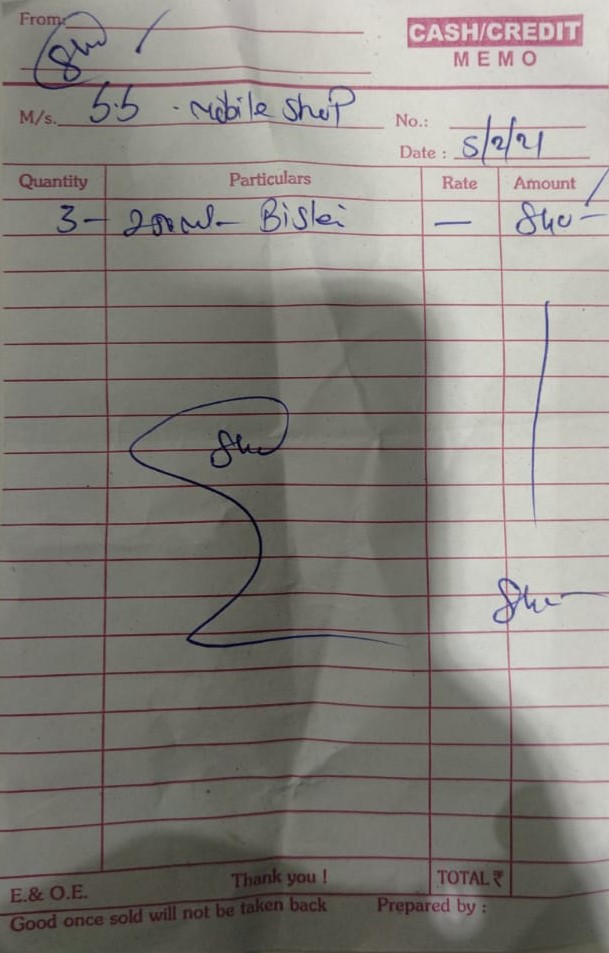 From:
840
CASH/CREDIT
MEMO
M/s. S.S - mobile shop
No.:
Date : 5/2/21
Quantity Particulars Rate Amount
3 - 200ml - — 840 -
840
840 -
Thank you ! TOTAL ₹
E.& O.E.
Good once sold will not be taken back Prepared by :